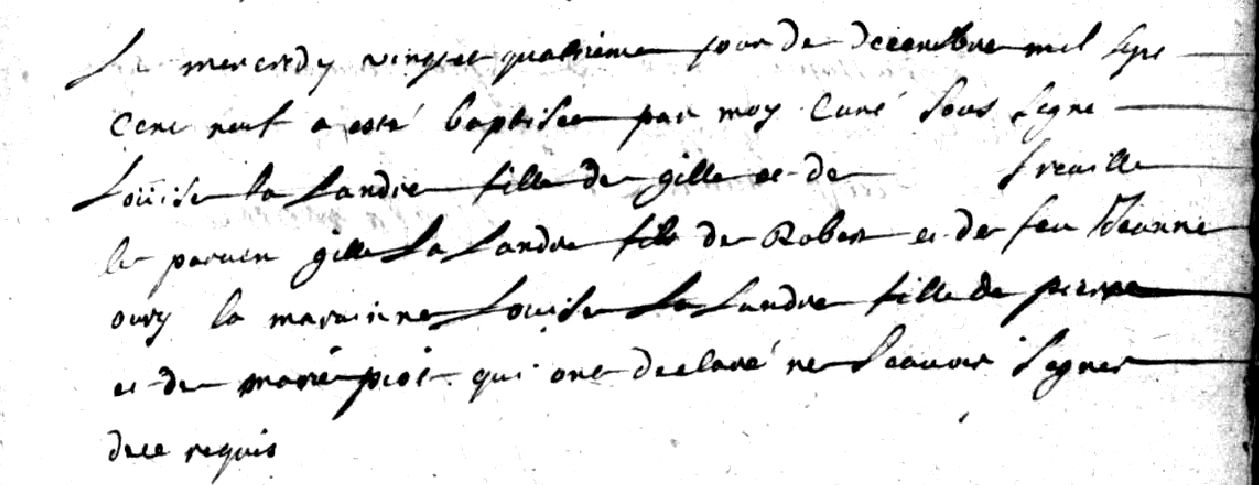 Le mercredy vingt et quatrieme jour de decembre mil sept
cent neuf a esté baptisee par moy Curé sous signé
Louise la Landre fille de gille et de
le parain gille La Landre fils de Robert et de feu Jeanne
oury la maraine Louise La Landre fille de pierre
et de marie piot qui ont declaré ne scavoir signer
de ce requis